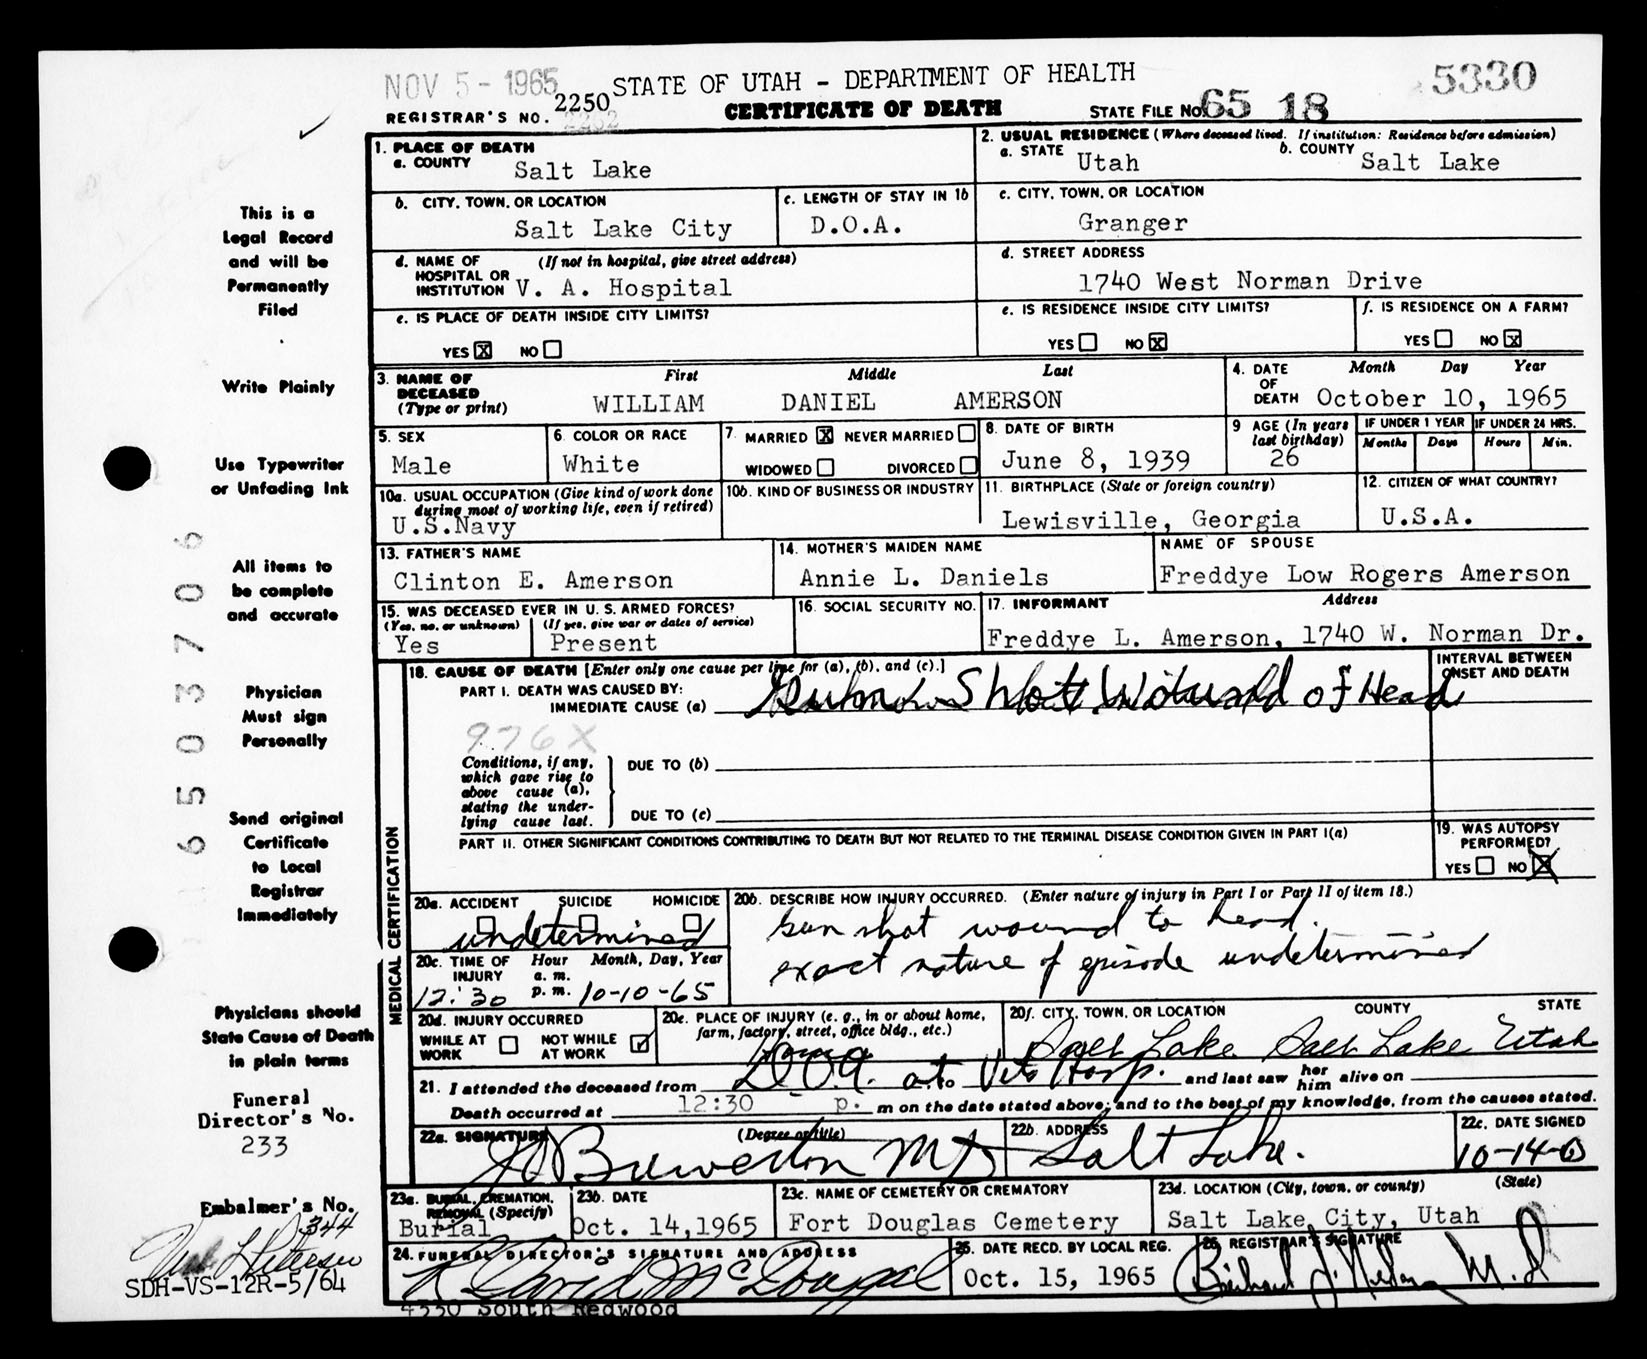 NOV 5 - 1965
STATE OF UTAH - DEPARTMENT OF HEALTH
5330
REGISTRAR'S NO. 2250
CERTIFICATE OF DEATH
STATE FILE NO. 65 18
This is a
Legal Record
and will be
Permanently
Filed
Write Plainly
Use Typewriter
or Unfading Ink
All items to
be complete
and accurate
Physician
Must sign
Personally
Send original
Certificate
to Local
Registrar
Immediately
Physicians should
State Cause of Death
in plain terms
Funeral
Director's No.
233
Embalmer's No.
344
SDH-VS-12R-5/64
65 0 3 7 0 6
1. PLACE OF DEATH
a. COUNTY Salt Lake
2. USUAL RESIDENCE (Where deceased lived. If institution: Residence before admission)
a. STATE Utah b. COUNTY Salt Lake
b. CITY, TOWN, OR LOCATION Salt Lake City
c. LENGTH OF STAY IN 1b D.O.A.
c. CITY, TOWN, OR LOCATION Granger
d. NAME OF HOSPITAL OR INSTITUTION (If not in hospital, give street address) V. A. Hospital
d. STREET ADDRESS 1740 West Norman Drive
e. IS PLACE OF DEATH INSIDE CITY LIMITS?
YES X NO
e. IS RESIDENCE INSIDE CITY LIMITS?
YES NO X
f. IS RESIDENCE ON A FARM?
YES NO X
3. NAME OF DECEASED (Type or print) First Middle Last
WILLIAM DANIEL AMERSON
4. DATE OF DEATH Month Day Year
October 10, 1965
5. SEX Male
6. COLOR OR RACE White
7. MARRIED X NEVER MARRIED
WIDOWED DIVORCED
8. DATE OF BIRTH June 8, 1939
9 AGE (In years last birthday) 26
IF UNDER 1 YEAR Months Days
IF UNDER 24 HRS. Hours Min.
10a. USUAL OCCUPATION (Give kind of work done during most of working life, even if retired)
U.S.Navy
10b. KIND OF BUSINESS OR INDUSTRY
11. BIRTHPLACE (State or foreign country) Lewisville, Georgia
12. CITIZEN OF WHAT COUNTRY? U.S.A.
13. FATHER'S NAME Clinton E. Amerson
14. MOTHER'S MAIDEN NAME Annie L. Daniels
NAME OF SPOUSE Freddye Low Rogers Amerson
15. WAS DECEASED EVER IN U. S. ARMED FORCES?
(Yes, no, or unknown) Yes
(If yes, give war or dates of service) Present
16. SOCIAL SECURITY NO.
17. INFORMANT Address
Freddye L. Amerson, 1740 W. Norman Dr.
MEDICAL CERTIFICATION
18. CAUSE OF DEATH [Enter only one cause per line for (a), (b), and (c).]
INTERVAL BETWEEN ONSET AND DEATH
PART I. DEATH WAS CAUSED BY:
IMMEDIATE CAUSE (a) Gun Shot Wound of Head
976X
Conditions, if any, which gave rise to above cause (a), stating the underlying cause last.
DUE TO (b)
DUE TO (c)
PART II. OTHER SIGNIFICANT CONDITIONS CONTRIBUTING TO DEATH BUT NOT RELATED TO THE TERMINAL DISEASE CONDITION GIVEN IN PART I(a)
19. WAS AUTOPSY PERFORMED?
YES NO X
20a. ACCIDENT SUICIDE HOMICIDE
undetermined
20b. DESCRIBE HOW INJURY OCCURRED. (Enter nature of injury in Part I or Part II of item 18.)
Gun shot wound to head.
exact nature of episode undetermined
20c. TIME OF INJURY Hour a. m. p. m. Month, Day, Year
12:30 10-10-65
20d. INJURY OCCURRED
WHILE AT WORK NOT WHILE AT WORK
20e. PLACE OF INJURY (e. g., in or about home, farm, factory, street, office bldg., etc.)
Home
20f. CITY, TOWN, OR LOCATION COUNTY STATE
Salt Lake Salt Lake Utah
21. I attended the deceased from D.O.A. at Vets Hosp. and last saw her him alive on
Death occurred at 12:30 p. m on the date stated above; and to the best of my knowledge, from the causes stated.
22a. SIGNATURE (Degree or title)
Brewerton MD
22b. ADDRESS Salt Lake.
22c. DATE SIGNED 10-14-65
23a. BURIAL, CREMATION, REMOVAL (Specify) Burial
23b. DATE Oct. 14,1965
23c. NAME OF CEMETERY OR CREMATORY Fort Douglas Cemetery
23d. LOCATION (City, town, or county) (State) Salt Lake City, Utah
24. FUNERAL DIRECTOR'S SIGNATURE AND ADDRESS
David McDougal
4330 South Redwood
25. DATE RECD. BY LOCAL REG. Oct. 15, 1965
26. REGISTRAR'S SIGNATURE
M.D